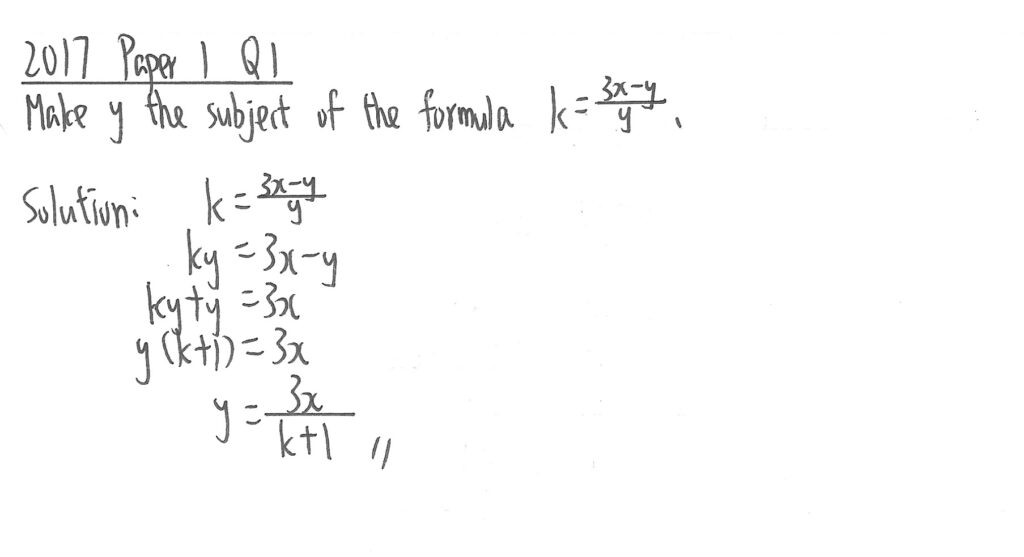 2017 Paper 1 Q1
Make y the subject of the formula k = (3x-y)/y.
Solution: k = (3x-y)/y
ky = 3x-y
ky+y = 3x
y(k+1) = 3x
y = 3x/(k+1) //